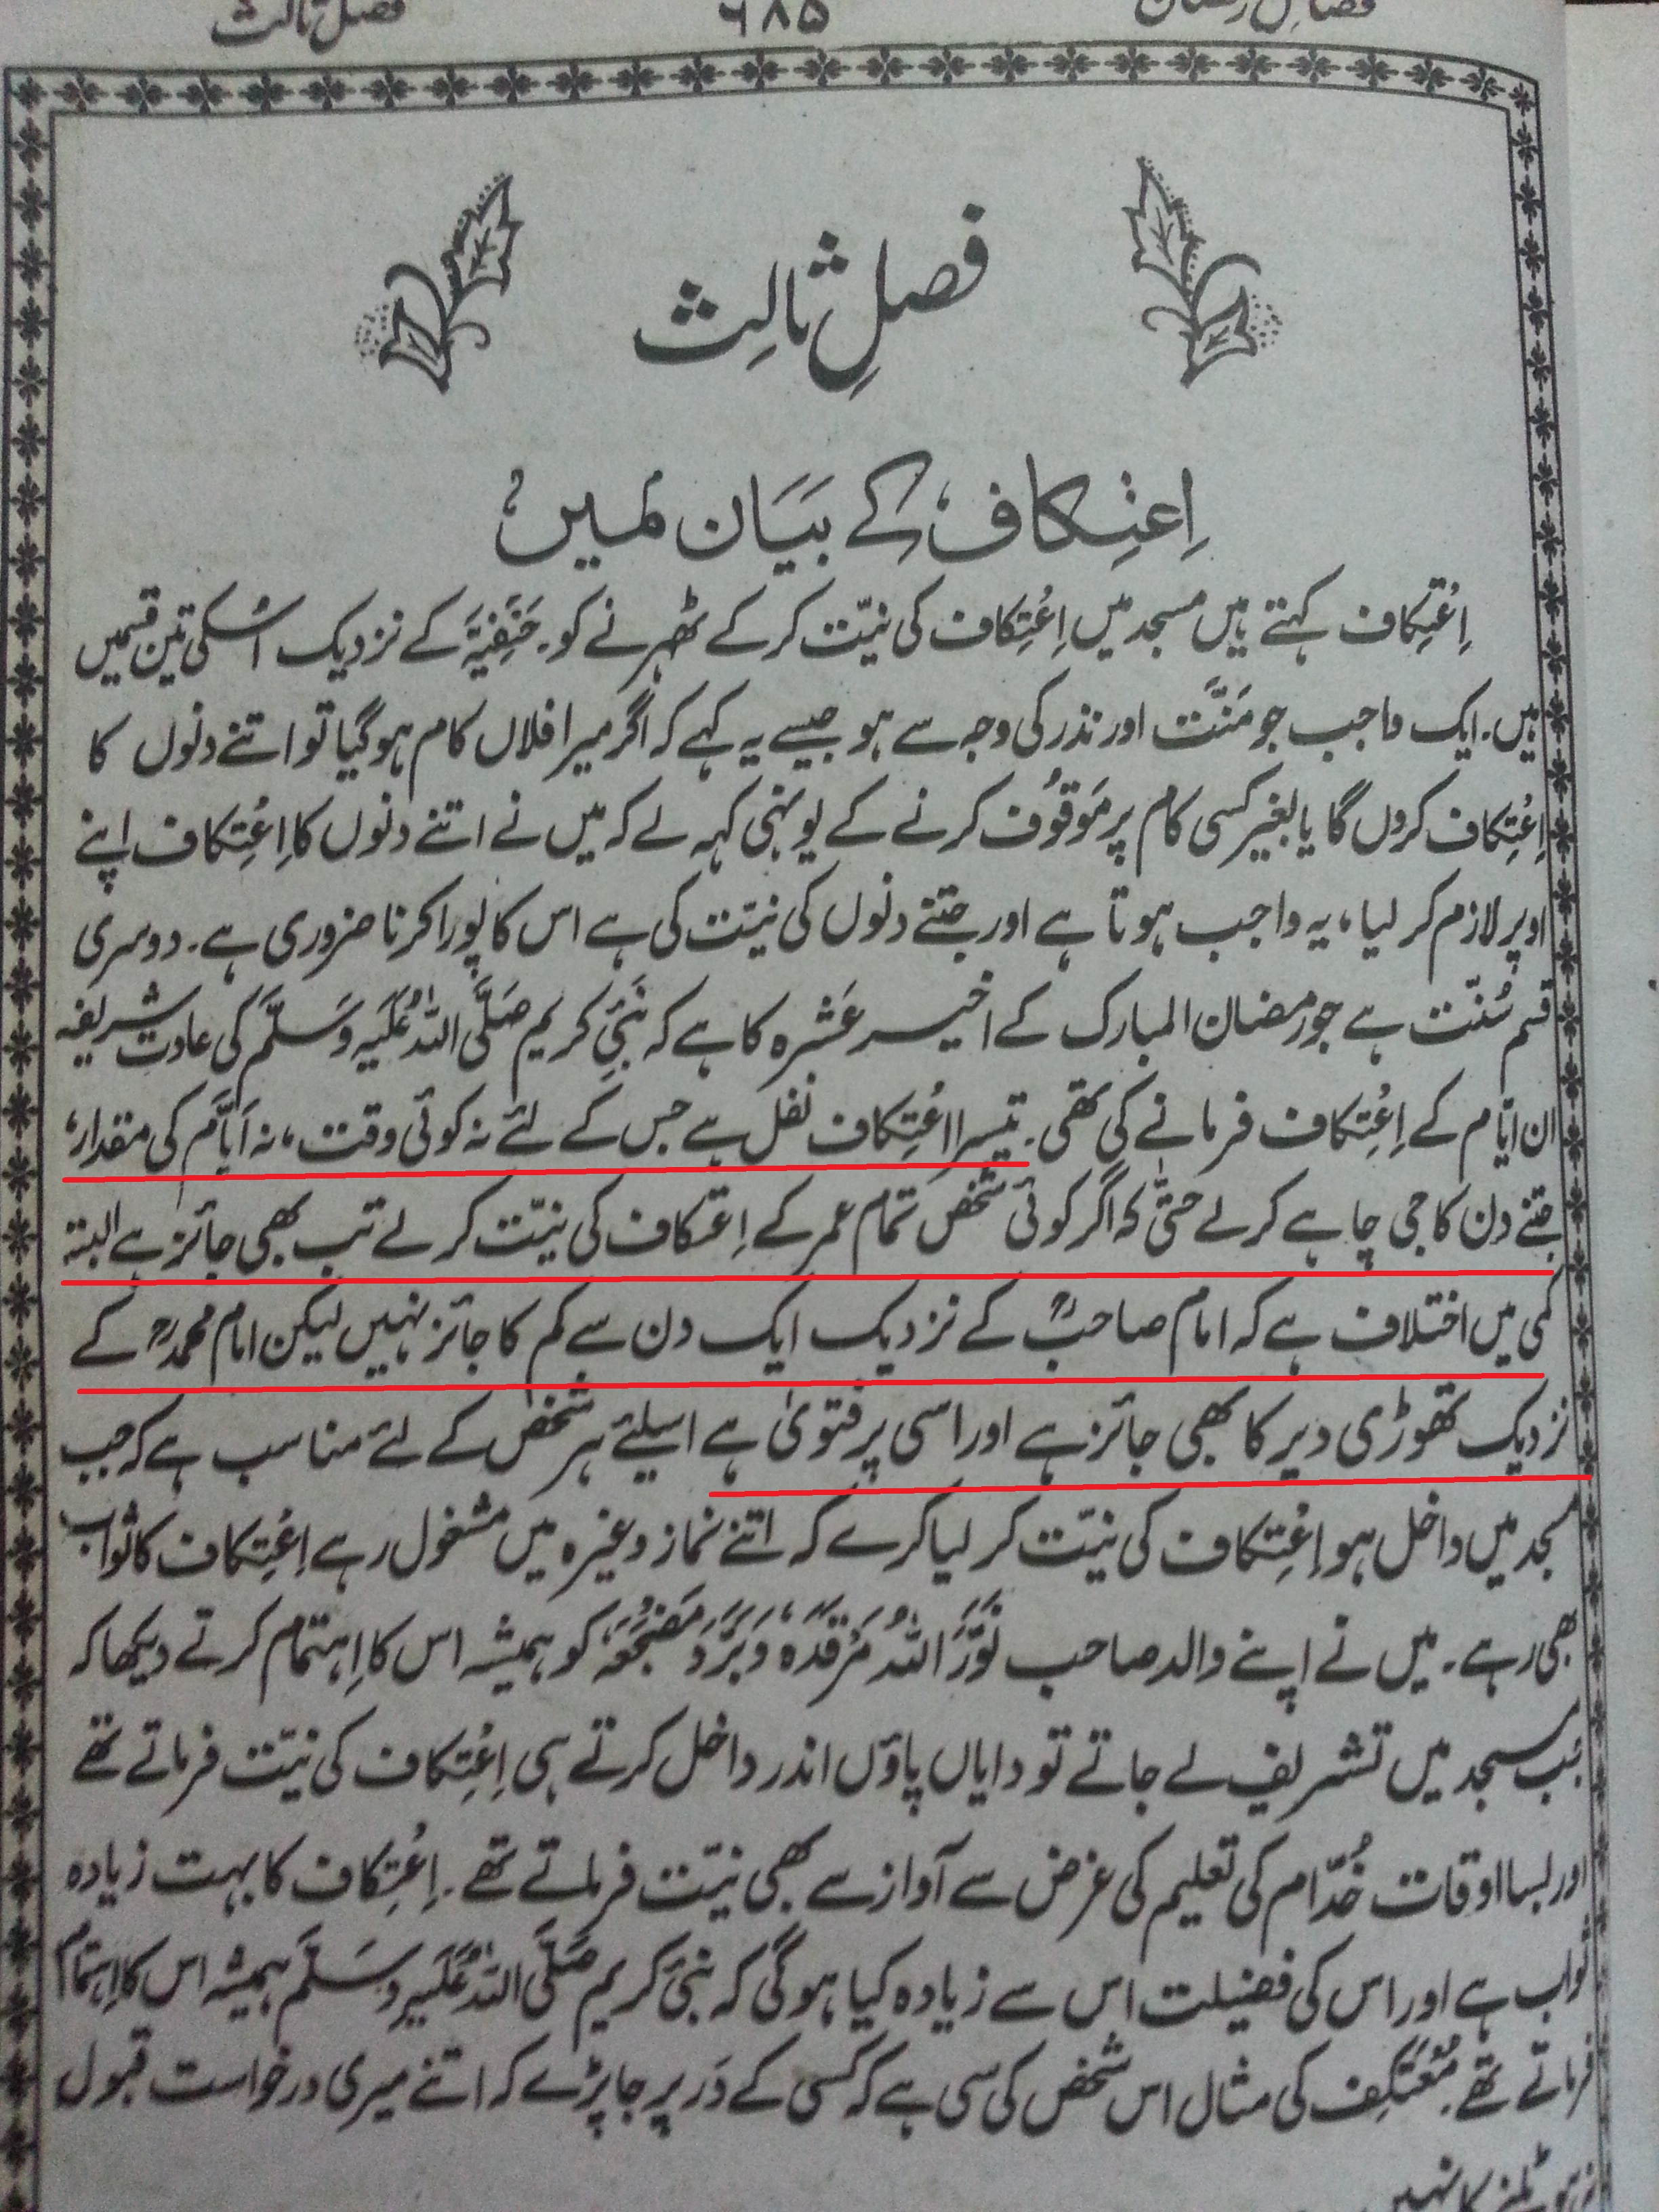 فضائل رمضان ۶۸۵ فصل ثالث
فصلِ ثالِث
اِعتِکاف کے بَیَان میں
اِعْتِکاف کہتے ہیں مسجد میں اِعْتِکاف کی نیّت کر کے ٹھہرنے کو۔ حَنَفِیَّہ کے نزدیک اسکی تین قسمیں
ہیں۔ ایک واجب جو مَنَّت اور نذر کی وجہ سے ہو جیسے یہ کہے کہ اگر میرا فلاں کام ہو گیا تو اتنے دنوں کا
اِعْتِکاف کروں گا یا بغیر کسی کام پر مَوقُوف کرنے کے یونہی کہہ لے کہ میں نے اتنے دنوں کا اِعْتِکاف اپنے
اوپر لازم کر لیا، یہ واجب ہوتا ہے اور جتنے دنوں کی نیّت کی ہے اس کا پورا کرنا ضروری ہے۔ دوسری
قسم سُنّت ہے جو رمضان المبارک کے اخیر عَشرہ کا ہے کہ نَبِیِّ کریم صَلَّی اللہُ عَلَیْہِ وَسَلَّم کی عادتِ شریفہ
ان ایّام کے اِعْتِکاف فرمانے کی تھی۔ تیسرا اعْتِکاف نفل ہے جس کے لئے نہ کوئی وقت، نہ اَیَّام کی مقدار،
جتنے دن کا جی چاہے کر لے حتیٰ کہ اگر کوئی شخص تمام عمر کے اِعتکاف کی نیّت کر لے تب بھی جائز ہے البتہ
کمی میں اختلاف ہے کہ امام صاحبؒ کے نزدیک ایک دن سے کم کا جائز نہیں لیکن امام محمدؒ کے
نزدیک تھوڑی دیر کا بھی جائز ہے اور اسی پر فتویٰ ہے اسلئے ہر شخص کے لئے مناسب ہے کہ جب
مسجد میں داخل ہو اِعْتِکاف کی نیّت کر لیا کرے کہ اتنے نماز وغیرہ میں مشغول رہے اِعْتِکاف کا ثواب
بھی رہے۔ میں نے اپنے والد صاحب نَوَّرَ اللہُ مَرْقَدَہٗ وَبَرَّدَ مَضْجَعَہٗ کو ہمیشہ اس کا اِہتمام کرتے دیکھا کہ
جب مسجد میں تشریف لے جاتے تو دایاں پاؤں اندر داخل کرتے ہی اِعْتِکاف کی نیّت فرماتے تھے
اور بسا اوقات خُدّام کی تعلیم کی غرض سے آواز سے بھی نیّت فرماتے تھے۔ اِعْتِکاف کا بہت زیادہ
ثواب ہے اور اس کی فضیلت اس سے زیادہ کیا ہو گی کہ نبیِّ کریم صَلَّی اللہُ عَلَیْہِ وَسَلَّم ہمیشہ اس کا اِہتمام
فرماتے تھے۔ مُعْتَکِف کی مثال اس شخص کی سی ہے کہ کسی کے دَر پر جا پڑے کہ اتنے میری درخواست قبول